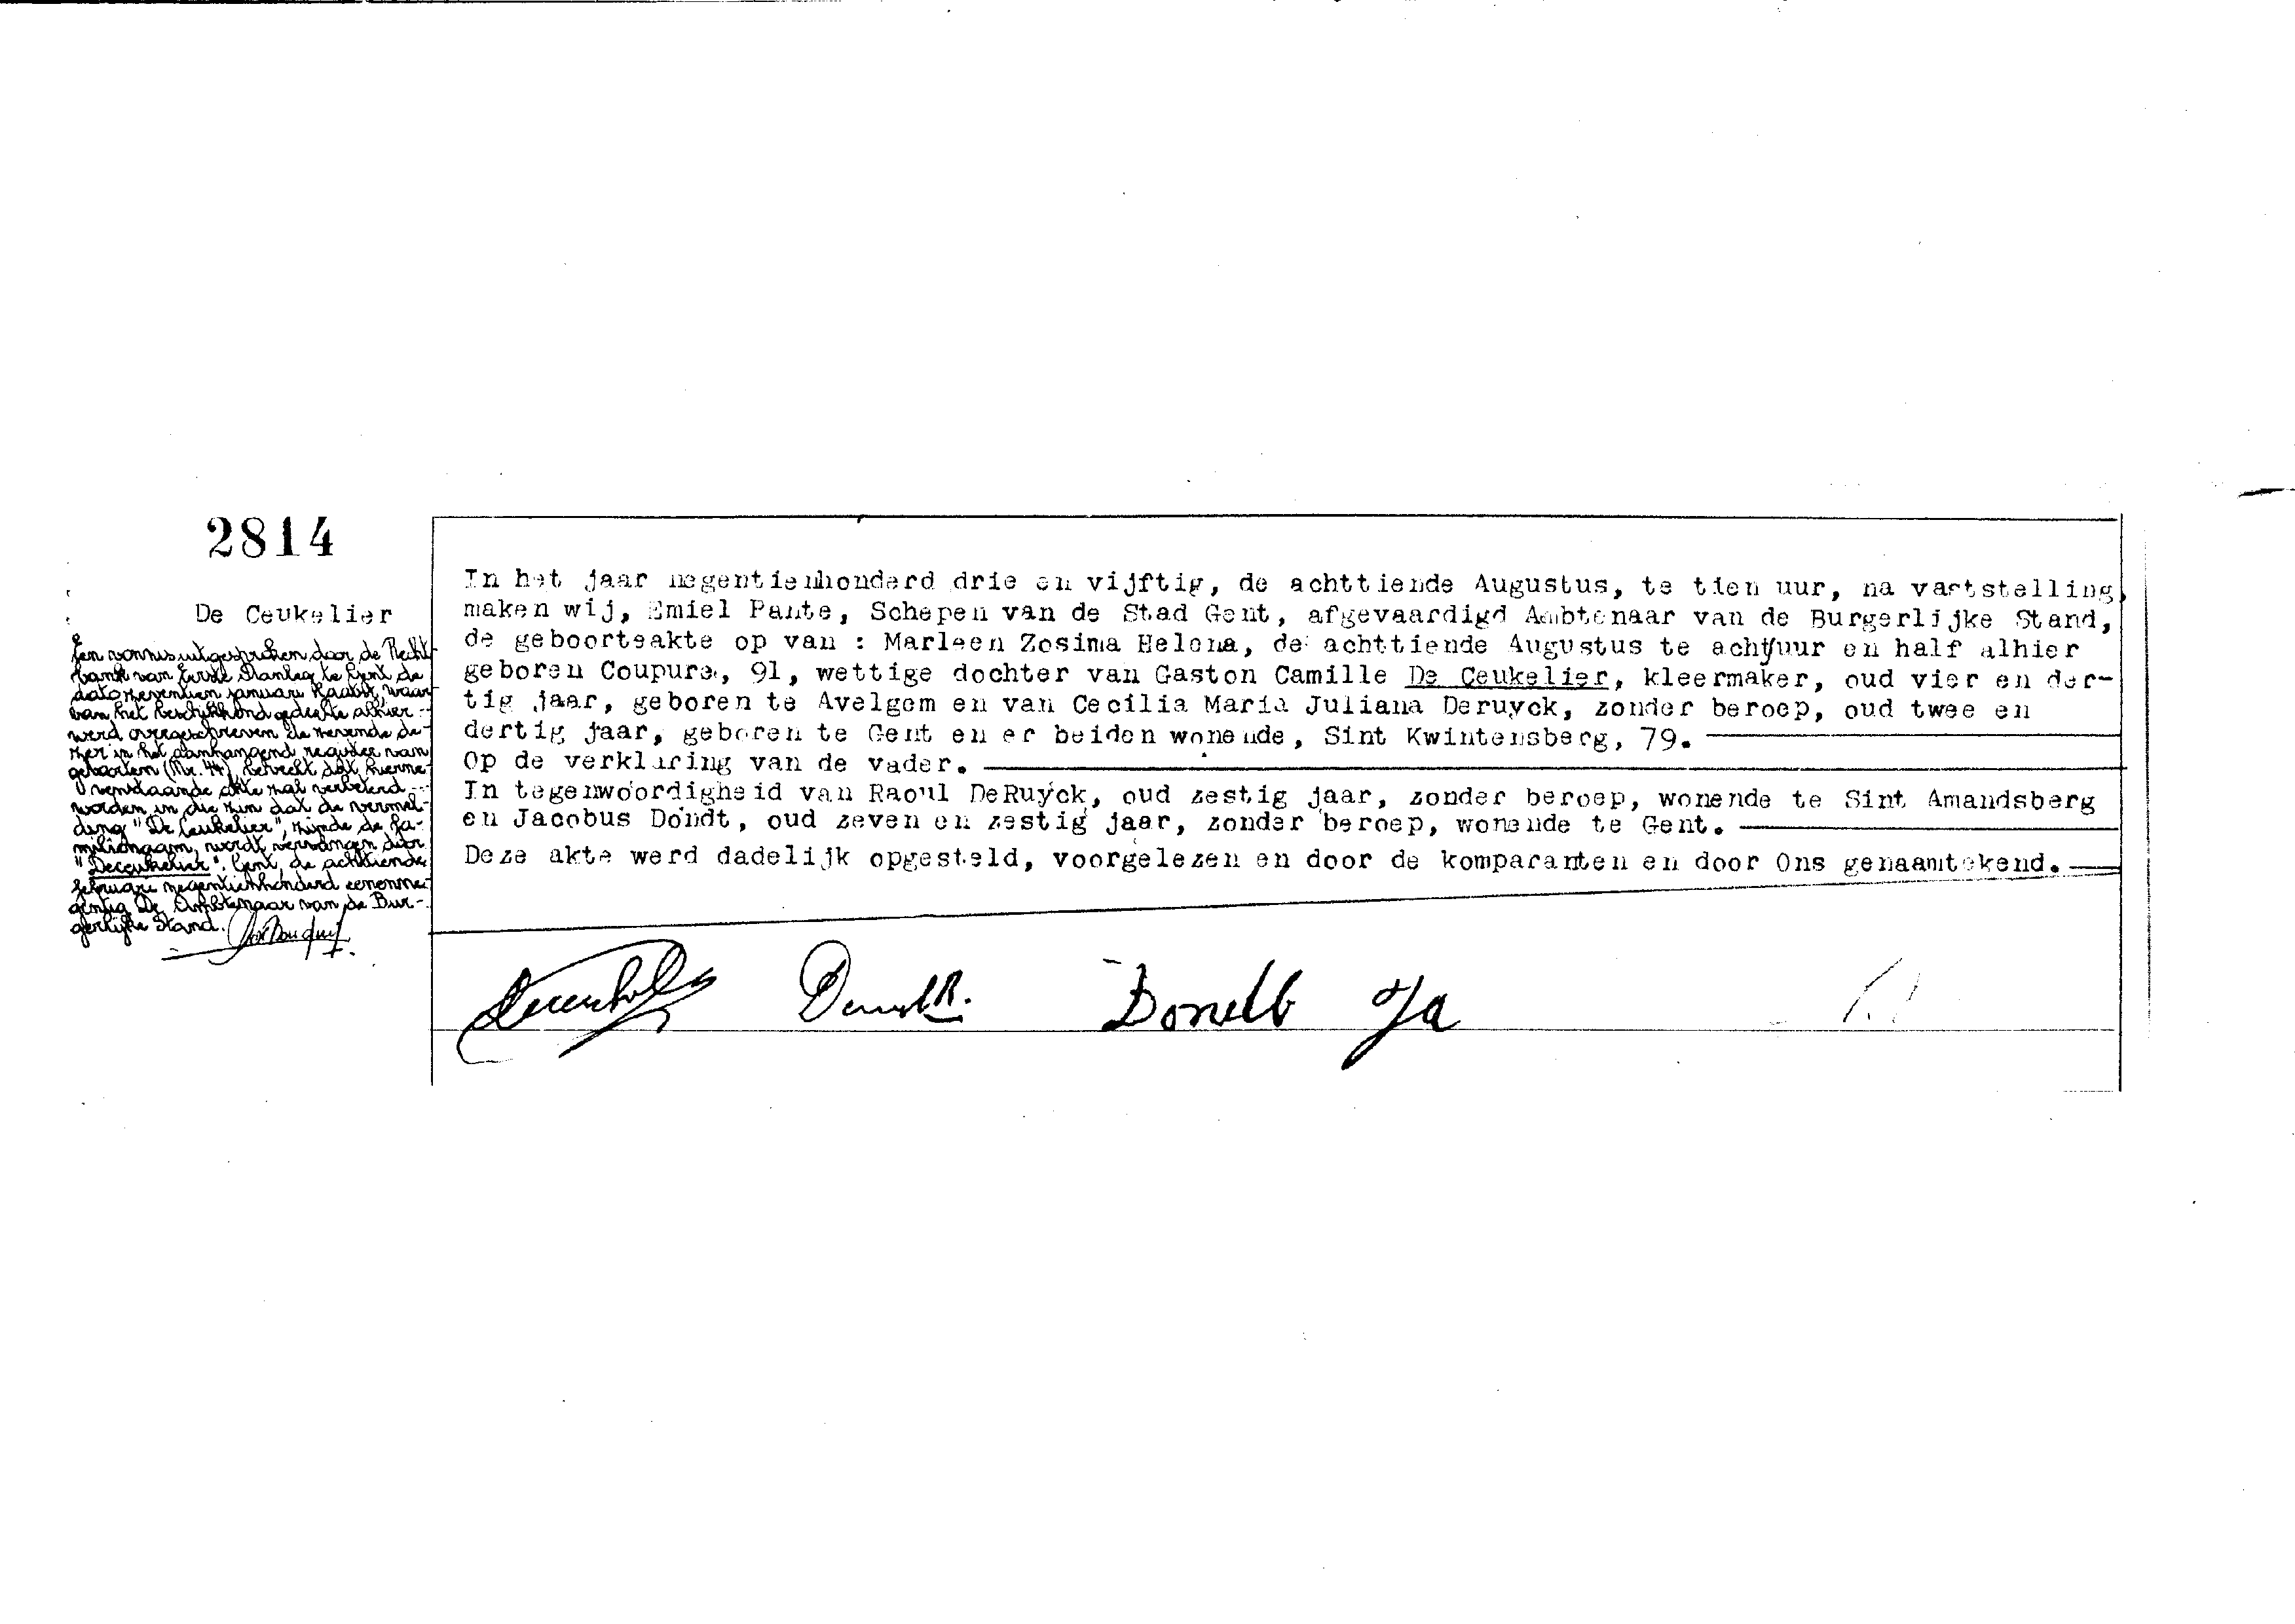 2814
De Ceukelier
Een vonnis uitgesproken door de Recht-
bank van Eerste Aanleg te Gent de
dato zeventien januari laatst, waar-
van het beschikkend gedeelte alhier
werd overgeschreven de zevende de-
zer in het aanhangend register van
geboorten (Nr. 44), beveelt dat hierne-
venstaande akte zal verbeterd
worden in die zin dat de vermel-
ding "De Ceukelier", zijnde de fa-
milienaam, wordt vervangen door
"Deceukelier". Gent, de achttiende
februari negentienhonderd eenenne-
gentig De Ambtenaar van de Bur-
gerlijke Stand.
In het jaar negentienhonderd drie en vijftig, de achttiende Augustus, te tien uur, na vaststelling,
maken wij, Emiel Pante, Schepen van de Stad Gent, afgevaardigd Ambtenaar van de Burgerlijke Stand,
de geboorteakte op van : Marleen Zosima Helena, de achttiende Augustus te acht uur en half alhier
geboren Coupure, 91, wettige dochter van Gaston Camille De Ceukelier, kleermaker, oud vier en der-
tig jaar, geboren te Avelgem en van Cecilia Maria Juliana Deruyck, zonder beroep, oud twee en
dertig jaar, geboren te Gent en er beiden wonende, Sint Kwintensberg, 79.
Op de verklaring van de vader.
In tegenwoordigheid van Raoul DeRuyck, oud zestig jaar, zonder beroep, wonende te Sint Amandsberg
en Jacobus Dondt, oud zeven en zestig jaar, zonder beroep, wonende te Gent.
Deze akte werd dadelijk opgesteld, voorgelezen en door de komparanten en door Ons genaamtekend.
Ja